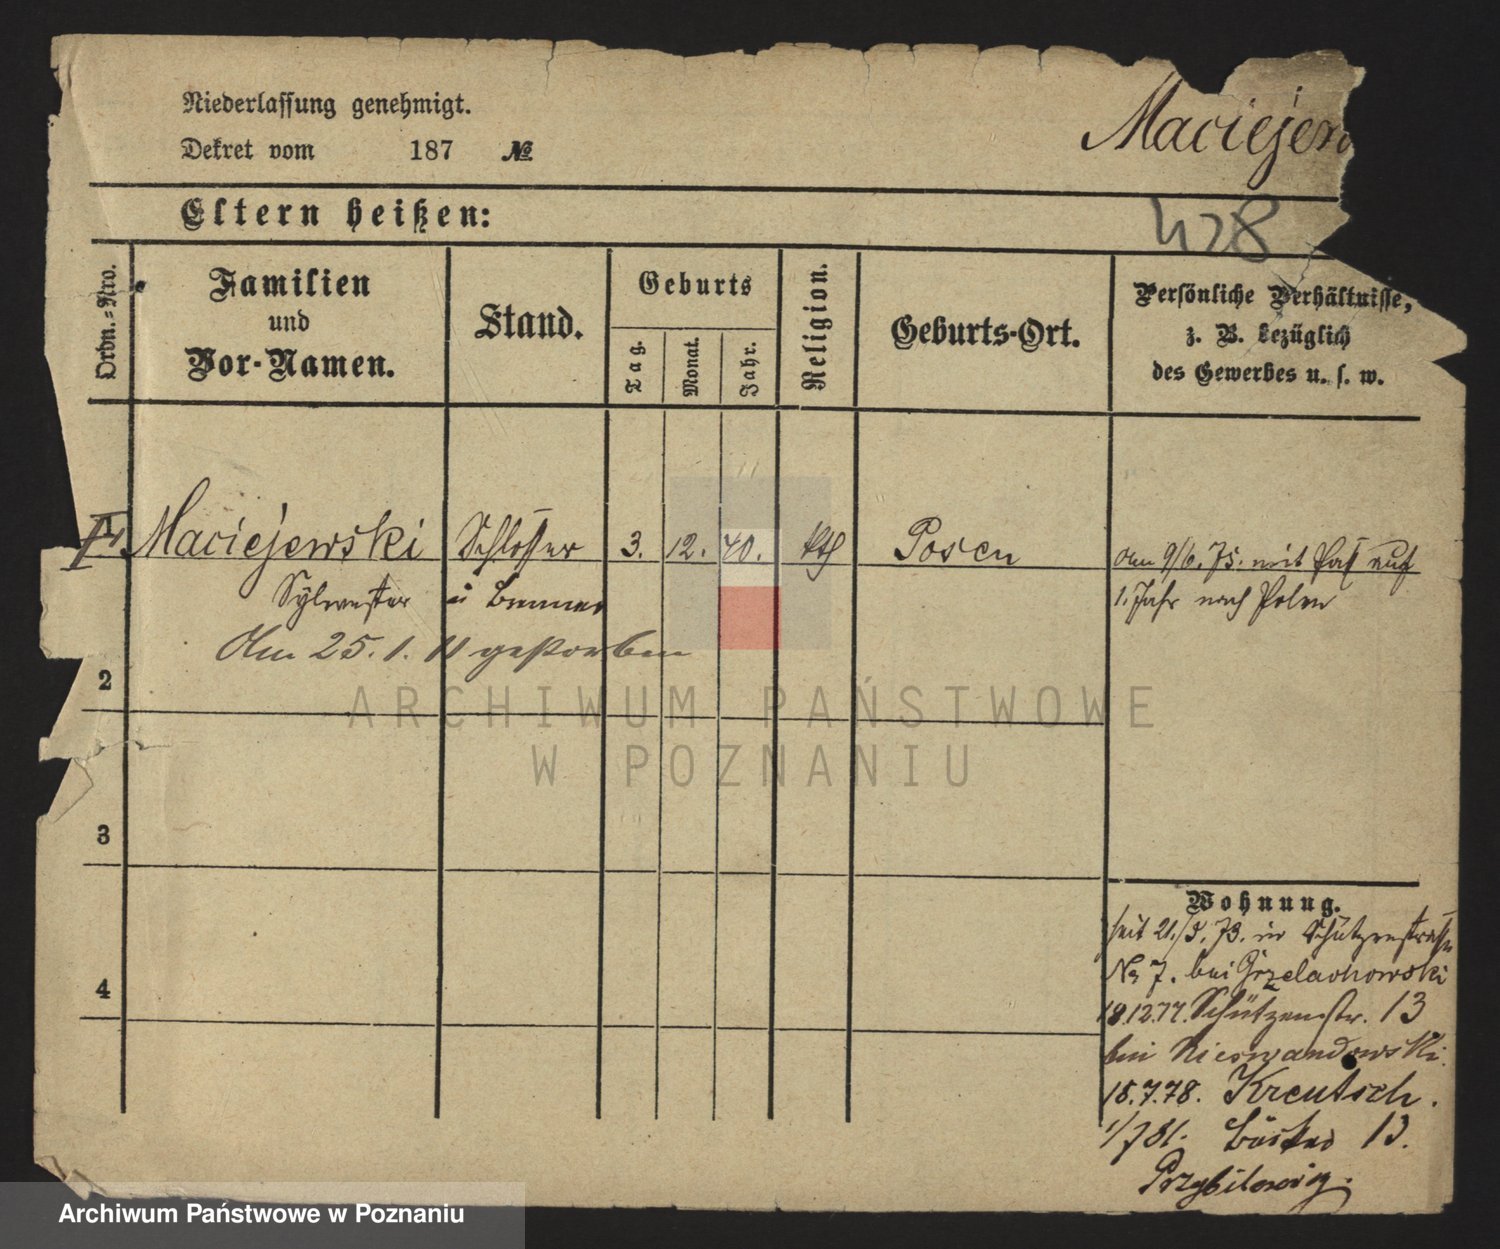 Niederlassung genehmigt.
Dekret vom 187 №
Maciejew
Eltern heißen:
428
Ordn.=Nro.
Familien
und
Vor-Namen.
Stand.
Geburts
Tag.
Monat.
Jahr.
Religion.
Geburts-Ort.
Persönliche Verhältnisse,
z. B. bezüglich
des Gewerbes u. s. w.
Maciejewski Schlosser 3. 12. 40. kth Posen
am 9/6. 75. mit Paß auf
Sylvester
1. Jahr nach Polen
Am 25. 1. 11 gestorben
2
ARCHIWUM PAŃSTWOWE
W POZNANIU
3
Wohnung.
seit 21./5. 73. in Schützenstraße
No 7. bei Grzelachowski
4
18.12.77. Schützenstr. 13
bei Nieswandowski.
15.7.78. Kreutsch.
1/7 81. 13.
Archiwum Państwowe w Poznaniu